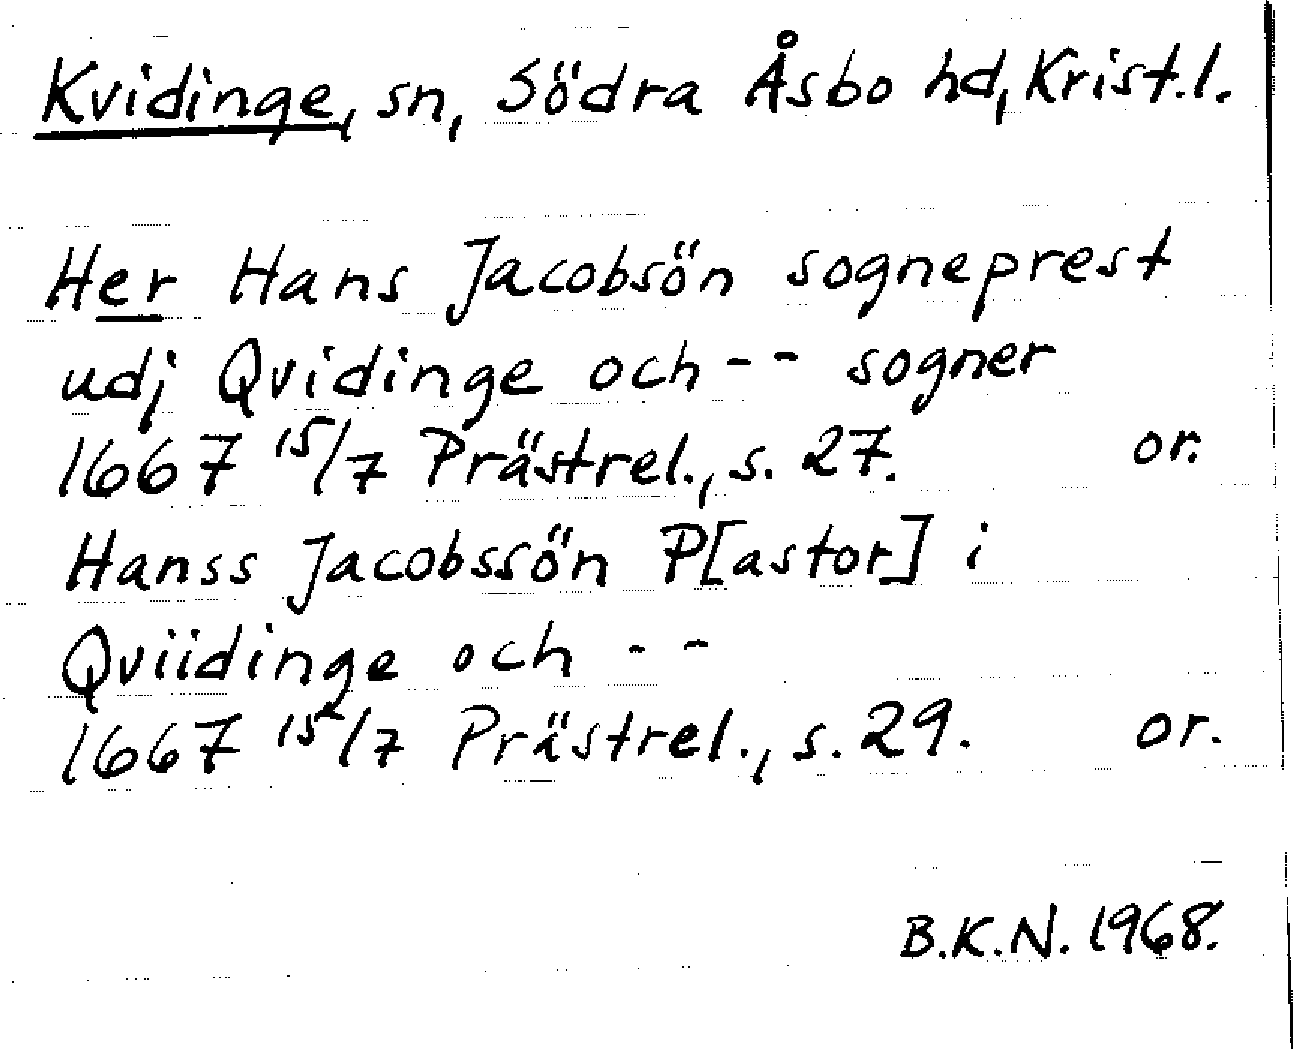 Kvidinge, sn, Södra Åsbo hd, Krist.l.
Her Hans Jacobsön sogneprest
udj Qvidinge och - - sogner
1667 15/7 Prästrel., s. 27. or.
Hanss Jacobssön P[astor] i
Qviidinge och - -
1667 15/7 Prästrel., s. 29. or.
B.K.N. 1968.